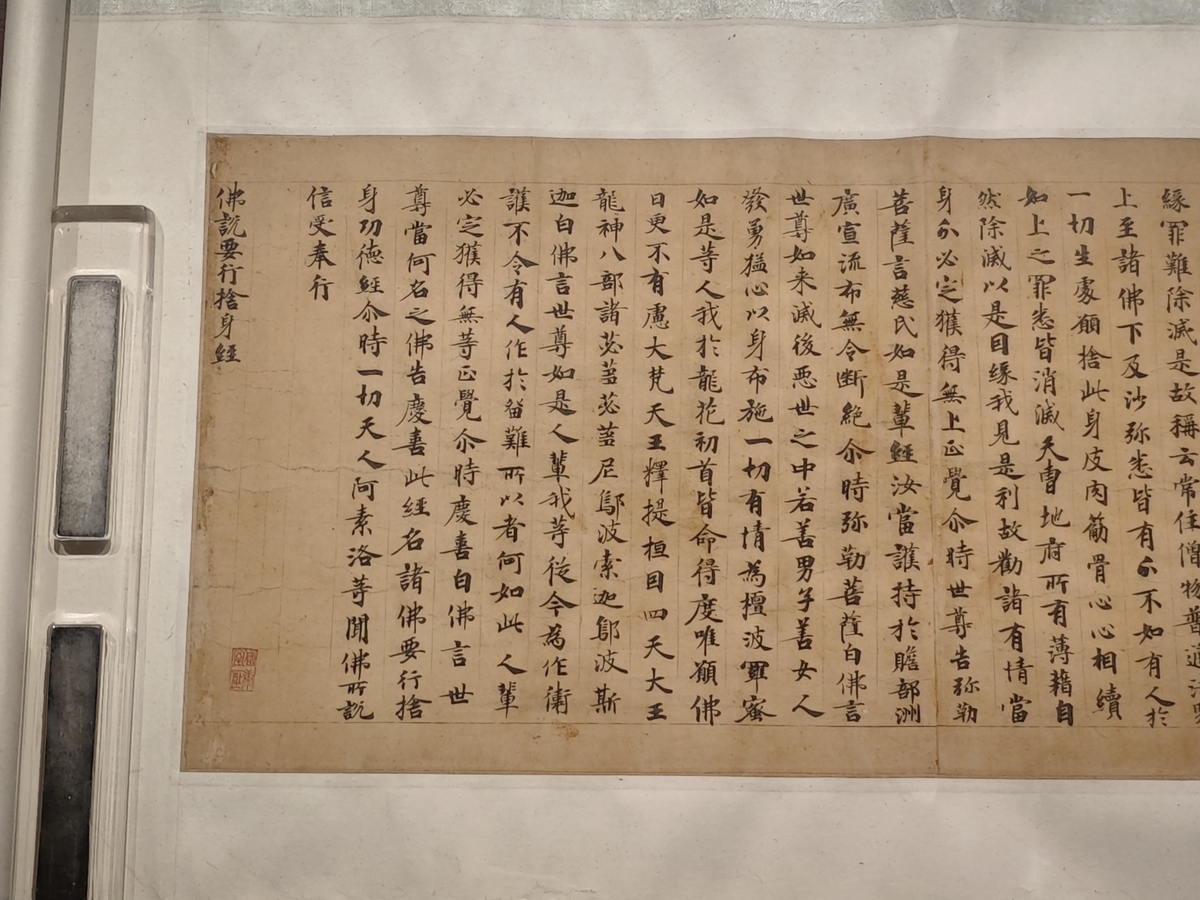 緣罪難除滅是故稱云常住僧物普通
上至諸佛下及沙弥悉皆有分不如有人於
一切生處願捨此身皮肉筋骨心心相續
如上之罪悉皆消滅天曹地府所有薄籍自
然除滅以是因緣我見是利故勸諸有情當
身分必定獲得無上正覺尒時世尊告弥勒
菩薩言慈氏如是輩經汝當護持於贍部洲
廣宣流布無令斷絕尒時弥勒菩薩白佛言
世尊如来滅後悪世之中若善男子善女人
發勇猛心以身布施一切有情為檀波羅蜜
如是等人我於龍花初首皆命得度唯願佛
日更不有慮大梵天王釋提桓因四天大王
龍神八部諸苾蒭苾蒭尼鄔波索迦鄔波斯
迦白佛言世尊如是人輩我等従今為作衛
護不令有人作於留難所以者何如此人輩
必定獲得無等正覺尒時慶喜白佛言世
尊當何名之佛告慶喜此經名諸佛要行捨
身功德經尒時一切天人阿素洛等聞佛所說
信受奉行
佛說要行捨身經